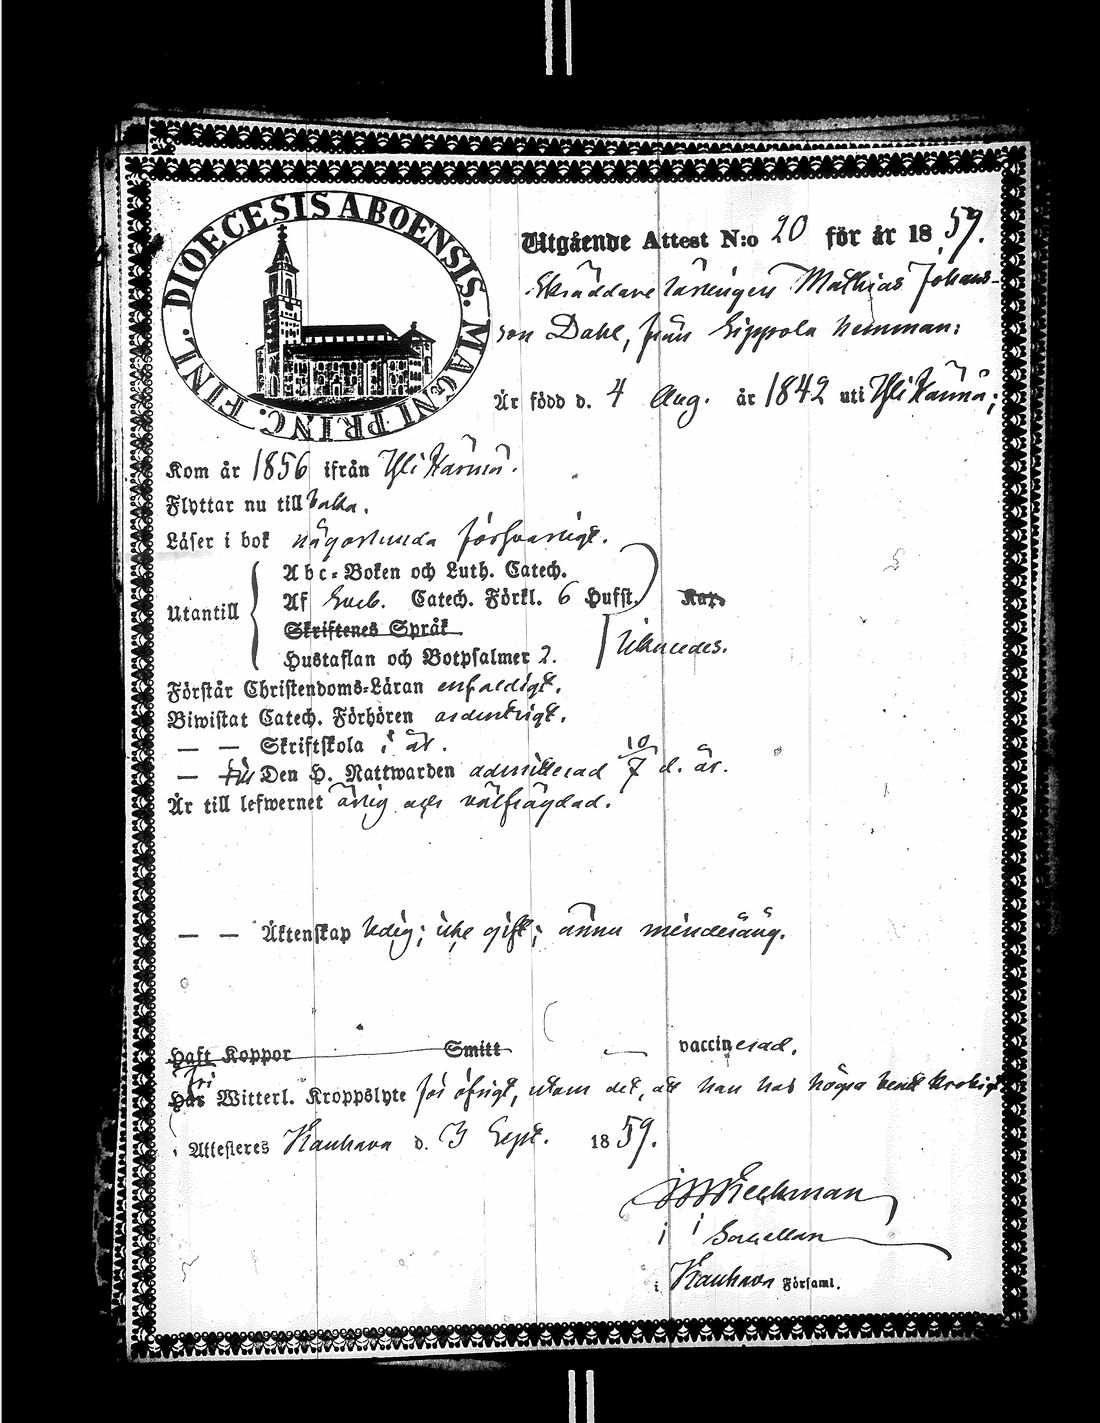 DIOECESIS ABOENSIS. MAGNI PRINC. FINL.
Utgående Attest N:o 20 för år 1859.
Skräddare lärlingen Mathias Johans-
son Dahl, från Sippola hemman;
Är född d. 4 Aug. år 1842 uti Ylihärmä;
Kom år 1856 ifrån Ylihärmä.
Flyttar nu till
Läser i bok någorlunda försvarligt.
Abc-Boken och Luth. Catech.
Utantill Af Sveb. Catech. Förkl. 6 Hufst. Kap.
Skriftenes Språk
Hustaflan och Botpsalmer 2. likaledes.
Förstår Christendoms-Läran enfaldigt.
Biwistat Catech. Förhören ordentligt.
— — Skriftskola i år.
— Till Den H. Nattwarden admitterad 10/7 d. år.
Är till lefwernet ärlig och välfrägdad.
— — Äktenskap ledig; icke gift; ännu minderårig.
Haft Koppor Smitt vaccinerad.
fri
Har Witterl. Kroppslyte för öfrigt, utom det, att han har högra benet krokigt
Attesteres Kauhava d. 3 Sept. 1859.
i Kauhava Församl.